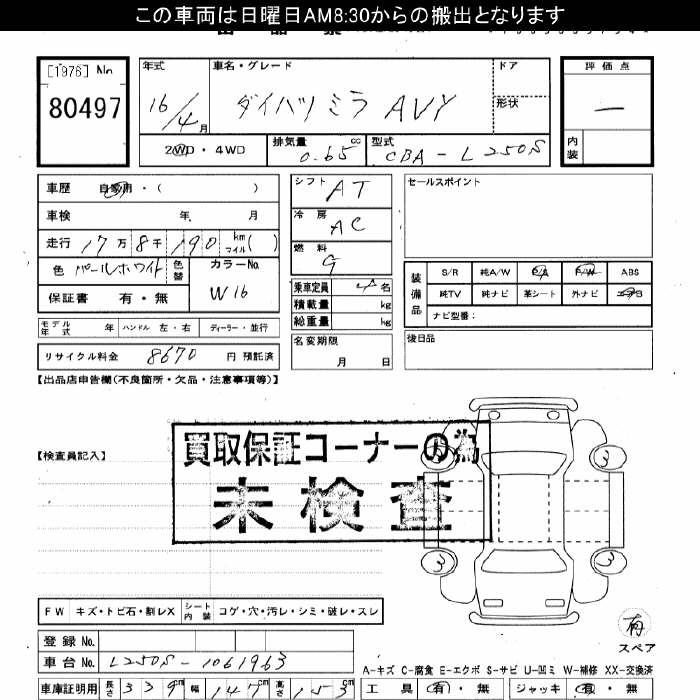 この車両は日曜日AM8:30からの搬出となります
[1976] No. 80497
年式 16/4月
車名・グレード ダイハツミラ AVY
ドア
形状
評価点 —
内装
2WD・4WD
排気量 0.65 cc
型式 CBA-L250S
車歴 自家用・( )
車検 年 月
走行 17万8千190 km マイル( )
色 パールホワイト 色替
カラーNo. W16
保証書 有・無
シフト AT
冷房 AC
燃料 G
乗車定員 4名
積載量 kg
総重量 kg
セールスポイント
装備品 S/R 純A/W P/S P/W ABS
純TV 純ナビ 革シート 外ナビ エアB
ナビ型番:
モデル年式 年 ハンドル 左・右 ディーラー・並行
リサイクル料金 8670 円 預託済
名変期限 月 日
後日品
【出品店申告欄(不良箇所・欠品・注意事項等)】
【検査員記入】
買取保証コーナーの為
未検査
3
3
3
FW キズ・トビ石・割レX シート内装 コゲ・穴・汚レ・シミ・破レ・スレ
有
スペア
登録No.
車台No. L250S-1061963
A-キズ C-腐食 E-エクボ S-サビ U-凹ミ W-補修 XX-交換済
車庫証明用 長さ 339cm 幅 147cm 高さ 153cm
工具 有・無 ジャッキ 有・無